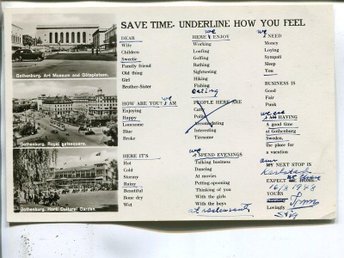 SAVE TIME. UNDERLINE HOW YOU FEEL
DEAR
Wife
Children
Sweetie
Family friend
Old thing
Girl
Brother-Sister
we
HERE I ENJOY
Working
Loafing
Golfing
Bathing
Sightseeing
Hiking
Fishing
eating
we
I NEED
Money
Loving
Sympati
Sleep
You
BUSINESS IS
Good
Fair
Punk
Gothenburg. Art Museum and Götaplatsen.
HOW ARE YOU? I AM
Enjoying
Happy
Lonesome
Blue
Broke
PEOPLE HERE ARE
Calm
Polite
Accomodating
Interesting
Tiresome
we are
I AM HAVING
A good time
at Gothenburg
Sweden,
the place for
a vacation
Gothenburg. Royal gatesquare.
HERE IT'S
Hot
Cold
Stormy
Rainy
Beautiful
Bone dry
Wet
we
I SPEND EVENINGS
Talking business
Dancing
At movies
Petting-spooning
Thinking of you
With the girls
With the boys
at restaurants
our
MY NEXT STOP IS
Karlstad
EXPECT
16/8 1948
YOURS
Lovingly
Gothenburg. Horti Cultural Garden.